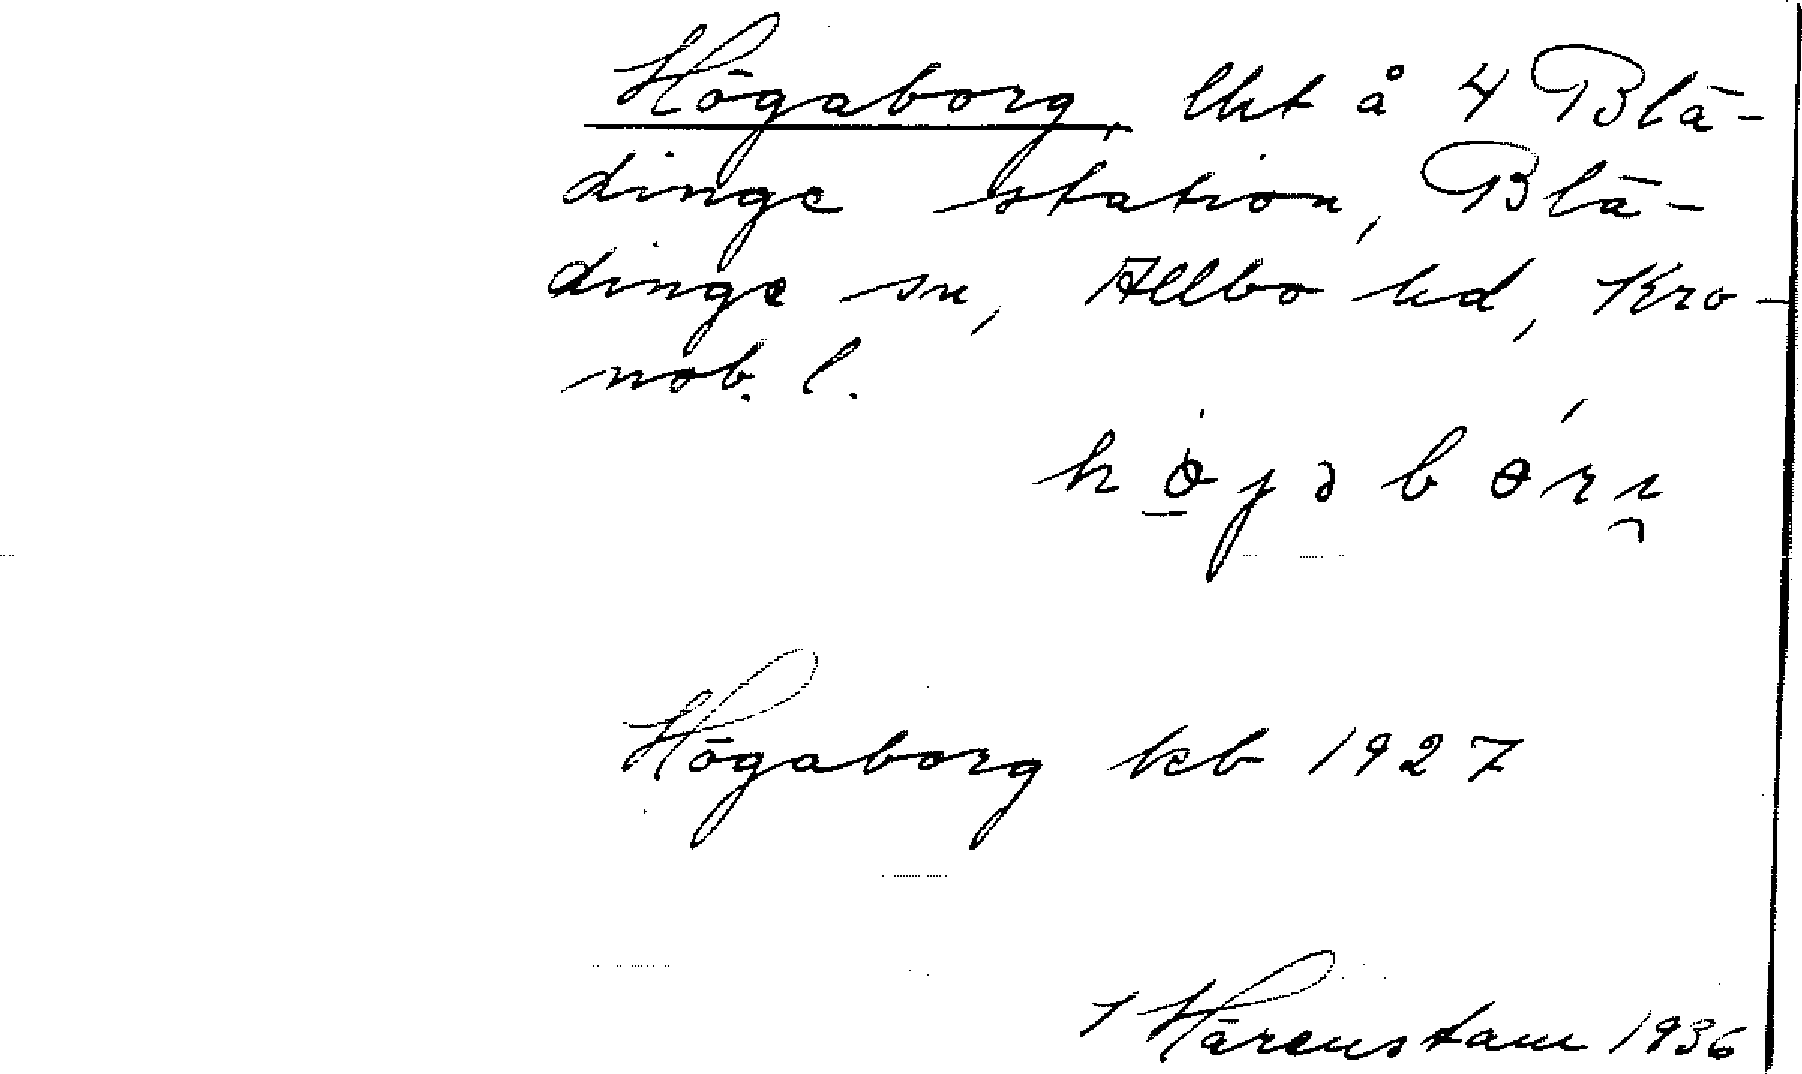 Högaborg, lht å 4 Blä-
dinge station, Blä-
dinge sn, Allbo hd, Kro-
nob. l.
Högaborg kb 1927
Hårenstam 1936